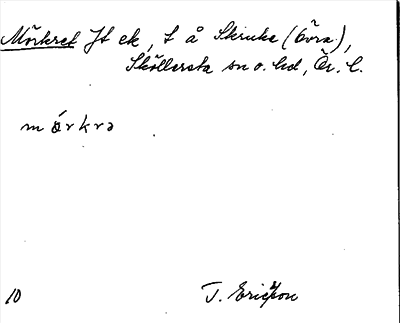 Mörkret Jt ek, t å Skruke (Övra),
Sköllersta sn o. hd, Ör. l.
mórkrə
10 T. Ericsson